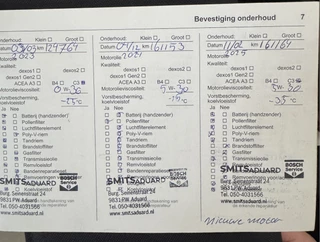 Bevestiging onderhoud 7
Onderhoud: Klein Groot
Datum 03/03 km 129764
Motorolie 2023
Kwaliteit:
dexos1 dexos2
dexos1 Gen2
ACEA A3 B4 C3
Motorolieviscositeit:
0 W-30
Vorstbescherming,
koelvloeistof -25°C
Ja Nee
Batterij (handzender)
Pollenfilter
Luchtfilterelement
Poly-V-riem
Tandriem
Brandstoffilter
Gasfilter
Transmissieolie
Remvloeistof
SMITS ADUARD
BOSCH
Service
Burg. Seinenstraat 24
9831 PW Aduard
Tel. 050-4031566
www.smitsaduard.nl
Onderhoud: Klein Groot
Datum 04/12 km 161153
Motorolie
Kwaliteit:
dexos1 dexos2
dexos1 Gen2
ACEA A3 B4 C3
Motorolieviscositeit:
5 W-30
Vorstbescherming,
koelvloeistof
Ja Nee
Batterij (handzender)
Pollenfilter
Luchtfilterelement
Poly-V-riem
Tandriem
Brandstoffilter
Gasfilter
Transmissieolie
Remvloeistof
Bandenreparatieset
SMITS ADUARD
BOSCH
Service
Burg. Seinenstraat 24
9831 PW Aduard
Tel. 050-4031566
www.smitsaduard.nl
Onderhoud: Klein Groot
Datum 11/02 km 161164
Motorolie 2025
Kwaliteit:
dexos1 dexos2
dexos1 Gen2
ACEA A3 B4 C3
Motorolieviscositeit:
5 W-30
Vorstbescherming,
koelvloeistof -35°C
Ja Nee
Batterij (handzender)
Pollenfilter
Luchtfilterelement
Poly-V-riem
Tandriem
Brandstoffilter
Gasfilter
Transmissieolie
Remvloeistof
SMITS ADUARD
BOSCH
Service
Burg. Seinenstraat 24
9831 PW Aduard
Tel. 050-4031566
www.smitsaduard.nl
Nieuwe motor